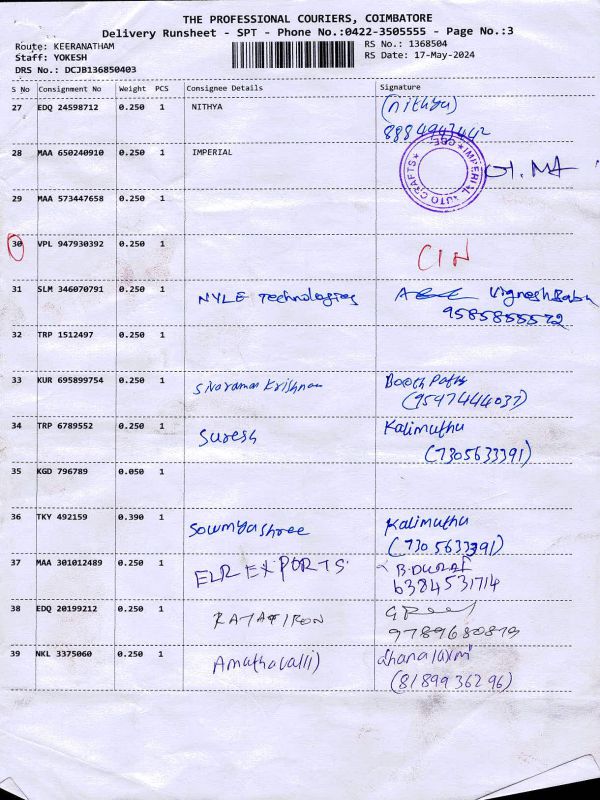 THE PROFESSIONAL COURIERS, COIMBATORE
Delivery Runsheet - SPT - Phone No.:0422-3505555 - Page No.:3
Route: KEERANATHAM RS No.: 1368504
Staff: YOKESH RS Date: 17-May-2024
DRS No.: DCJB136850403
S No Consignment No Weight PCS Consignee Details Signature
27 EDQ 24598712 0.250 1 NITHYA (nithya)
28 MAA 650240910 0.250 1 IMPERIAL
IMPERIAL AUTO CRAFTS CBE
29 MAA 573447658 0.250 1
30 VPL 947930392 0.250 1 CIN
31 SLM 346070791 0.250 1 NYLE Technologies VigneshBabu
9585855572
32 TRP 1512497 0.250 1
33 KUR 695899754 0.250 1 Sivaraman Krishnan
(9547444037)
34 TRP 6789552 0.250 1 Suresh Kalimuthu
(7305633391)
35 KGD 796789 0.050 1
36 TKY 492159 0.390 1 Sowmyashree Kalimuthu
(7305633391)
37 MAA 301012489 0.250 1 ELR EXPORTS B.DURAI
6384531714
38 EDQ 20199212 0.250 1
9789680879
39 NKL 3375060 0.250 1 Amuthavalli) dhanalaxmi
(8189936296)